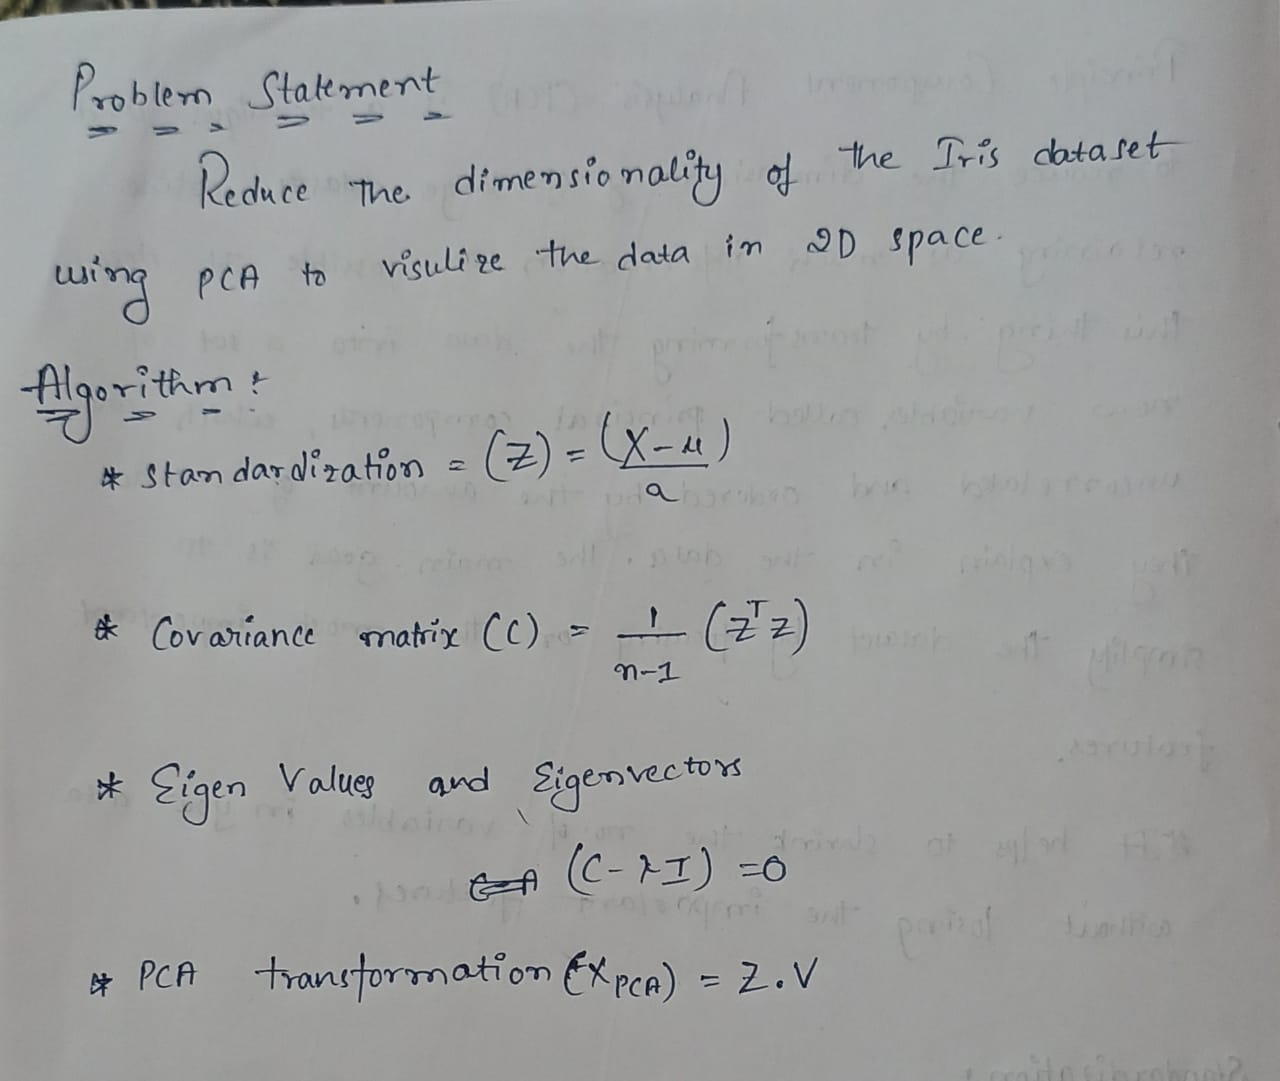 Problem Statement
Reduce The dimensionality of the Iris dataset
using PCA to visulize the data in 2D space.
Algorithm :
* Standardization = (Z) = (X-μ)
a
* Covariance matrix (C) = 1/n-1 (ZᵀZ)
* Eigen Values and Eigenvectors
(C-λI) =0
* PCA transformation (X PCA) = Z.V